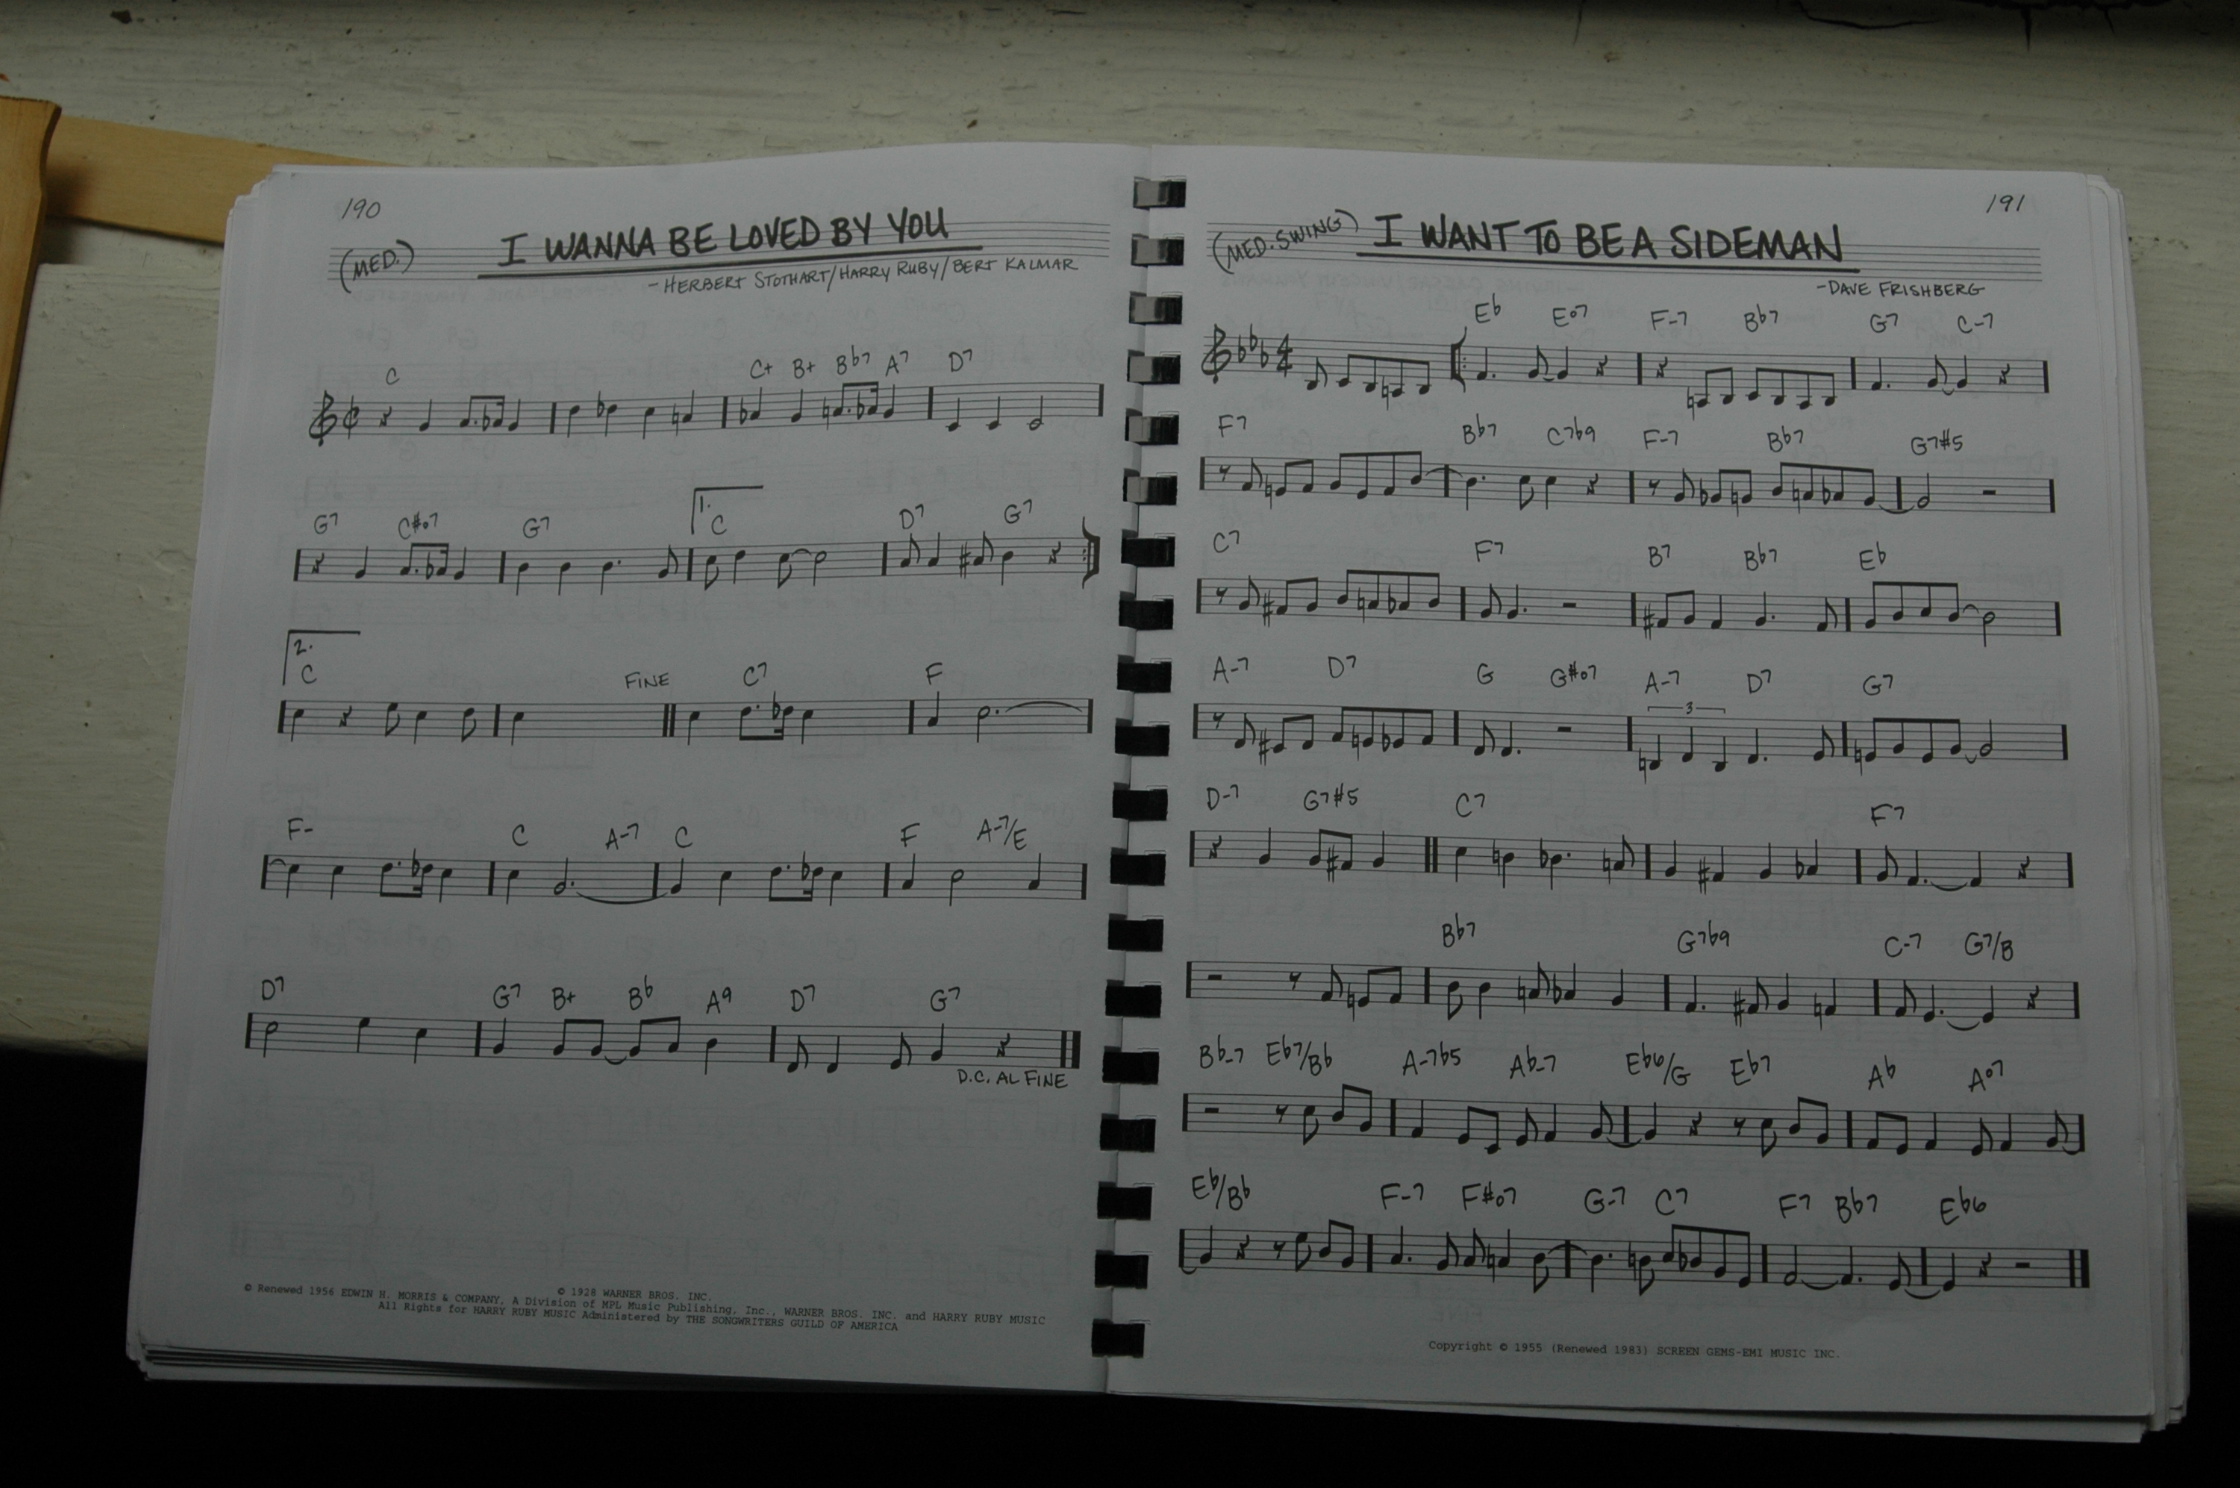 190
(MED.)
I WANNA BE LOVED BY YOU
- HERBERT STOTHART/HARRY RUBY/BERT KALMAR
C C+ B+ Bb7 A7 D7
1.
G7 C#o7 G7 C D7 G7
2.
C FINE C7 F
F- C A-7 C F A-7/E
D7 G7 B+ Bb A9 D7 G7
D.C. AL FINE
© 1928 WARNER BROS. INC.
© Renewed 1956 EDWIN H. MORRIS & COMPANY, A Division of MPL Music Publishing, Inc., WARNER BROS. INC. and HARRY RUBY MUSIC
All Rights for HARRY RUBY MUSIC Administered by THE SONGWRITERS GUILD OF AMERICA
191
(MED. SWING)
I WANT TO BE A SIDEMAN
- DAVE FRISHBERG
Eb Eo7 F-7 Bb7 G7 C-7
F7 Bb7 C7b9 F-7 Bb7 G7#5
C7 F7 B7 Bb7 Eb
A-7 D7 G G#o7 A-7 D7 G7
3
D-7 G7#5 C7 F7
Bb7 G7b9 C-7 G7/B
Bb-7 Eb7/Bb A-7b5 Ab-7 Eb6/G Eb7 Ab Ao7
Eb/Bb F-7 F#o7 G-7 C7 F7 Bb7 Eb6
Copyright © 1955 (Renewed 1983) SCREEN GEMS-EMI MUSIC INC.